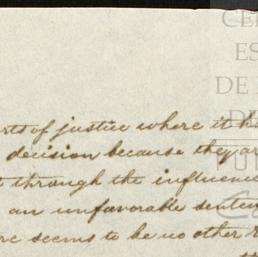 CE
ES
DE
rts of justice where it ha
decision because they ar
through the influence
an unfavorable senten
re seems to be no other r